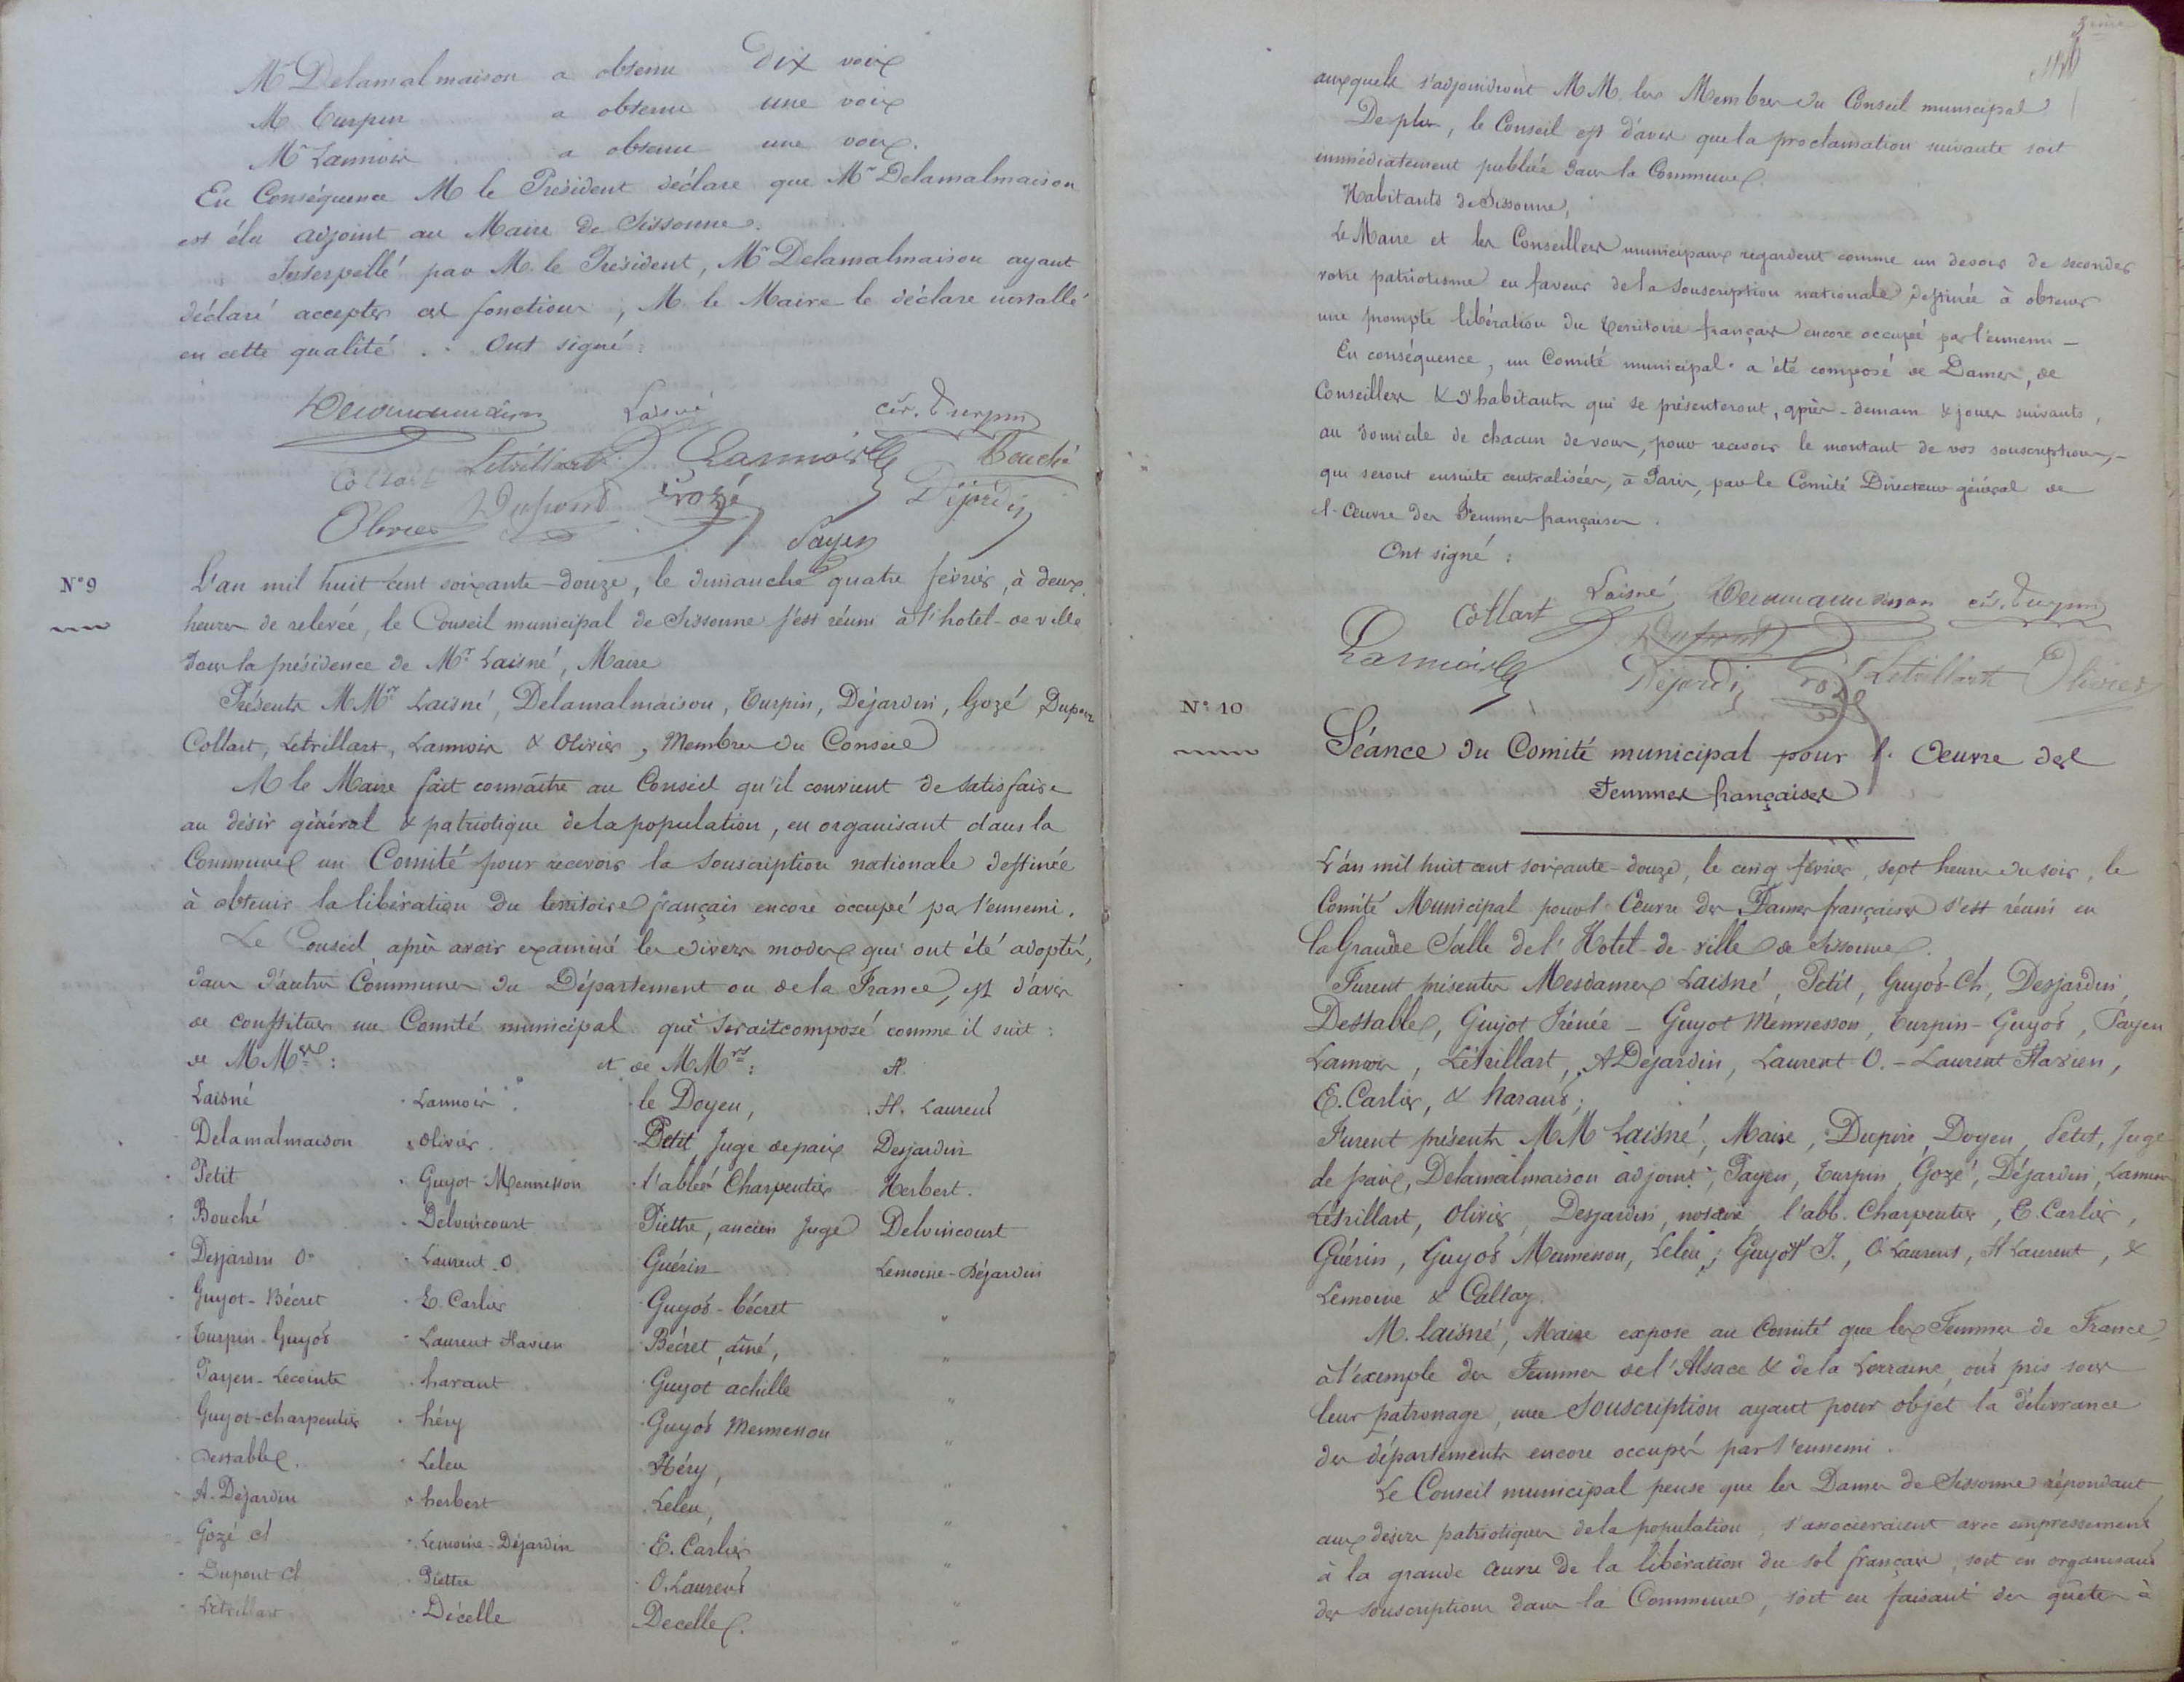 Mr Delamalmaison a obtenu dix voix
M Turpin a obtenu une voix
Mr Lannois a obtenu une voix.
En Conséquence M le Président déclare que Mr Delamalmaison
est élu adjoint au Maire de Sissonne.
Interpellé par M. le Président, Mr Delamalmaison ayant
déclaré accepter ces fonctions, M. le Maire le déclare installé
en cette qualité. Ont signé:
Delamalmaison Laisné cés. Turpin
Collart Létrillart Lannois Bouché
Olivier Dupont Gozé Déjardin
Payen
N° 9
L'an mil huit cent soixante-douze, le dimanche quatre février, à deux
heures de relevée, le Conseil municipal de Sissonne s'est réuni à l'hotel-de ville
sous la présidence de Mr Laisné, Maire
Présents MMrs Laisné, Delamalmaison, Turpin, Déjardin, Gozé, Dupont
Collart, Letrillart, Lannois & Olivier, Membres du Conseil
M le Maire fait connaître au Conseil qu'il convient de satisfaire
au désir général & patriotique de la population, en organisant dans la
Commune un Comité pour recevoir la souscription nationale destinée
à obtenir la libération du territoire français encore occupé par l'ennemi.
Le Conseil, après avoir examiné les divers modes qui ont été adoptés,
dans d'autres Communes du Département ou de la France, est d'avis
de constituer un Comité municipal qui serait composé comme il suit:
de MMmes: et de MMrs: H.
Laisné Lannois le Doyen, H. Laurent
Delamalmaison Olivier Petit Juge de paix Desjardin
Petit Guyot Mennesson l'abbé Charpentier Herbert.
Bouché Delvincourt Piettre, ancien Juge Delvincourt
Desjardin O. Laurent O. Guérin Lemoine-Déjardin
Guyot-Bécret E. Carlier Guyot-bécret "
Turpin-Guyot Laurent Flavien Bécret, ainé, "
Payen-Lecointe harant Guyot achille "
Guyot-charpentier héry Guyot Mennesson "
Destable. Leleu Héry, "
A. Déjardin herbert Leleu, "
Gozé Cl Lemoine-Déjardin E. Carlier "
Dupont Cl Piettre O. Laurent "
Létrillart Décelle Decelle. "
3ème
auxquels s'adjoindront MM. les Membres du Conseil municipal
De plus, le Conseil est d'avis que la proclamation suivante soit
immédiatement publiée dans la Commune.
Habitants de Sissonne,
Le Maire et les Conseillers municipaux regardent comme un devoir de seconder
votre patriotisme en faveur de la souscription nationale destinée à obtenir
une prompte libération du territoire français encore occupé par l'ennemi —
En conséquence, un Comité municipal a été composé de Dames, de
Conseillers & d'habitants qui se présenteront, après-demain & jours suivants,
au domicile de chacun de vous, pour recevoir le montant de vos souscriptions,
qui seront ensuite centralisées, à Paris, par le Comité Directeur général de
l'Œuvre des Femmes françaises.
Ont signé:
Collart Laisné Delamalmaison cés. Turpin
Lannois Dupont
Déjardin Gozé Létrillart Olivier
N° 10
Séance du Comité municipal pour l'Œuvre des
Femmes françaises
L'an mil huit cent soixante-douze, le cinq février, sept heures du soir, le
Comité Municipal pour l'Œuvre des Dames françaises s'est réuni en
la Grande Salle de l'Hotel-de-ville de Sissonne.
Furent présentes Mesdames Laisné, Petit, Guyot-Ch, Desjardin,
Destable, Guyot Irénée - Guyot Mennesson, Turpin-Guyot, Payen
Lannois, Létrillart, A Déjardin, Laurent O. - Laurent Flavien,
E. Carlier, & harant;
Furent présents MM Laisné, Maire, Dupire, Doyen, Petit, Juge
de paix, Delamalmaison adjoint, Payen, Turpin, Gozé, Déjardin, Lannois
Létrillart, Olivier, Desjardin, notaire, l'abb. Charpentier, E. Carlier,
Guérin, Guyot Mennesson, Leleu, Guyot I., O. Laurent, H Laurent, &
Lemoine & Callay.
M. laisné, Maire expose au Comité que les Femmes de France,
à l'exemple des Femmes de l'Alsace & de la Lorraine, ont pris sous
leur patronage, une souscription ayant pour objet la délivrance
des départements encore occupés par l'ennemi.
Le Conseil municipal pense que les Dames de Sissonne répondant
aux désirs patriotiques de la population, s'associeraient avec empressement
à la grande Œuvre de la libération du sol français, soit en organisant
des souscriptions dans la Commune, soit en faisant des quêtes à